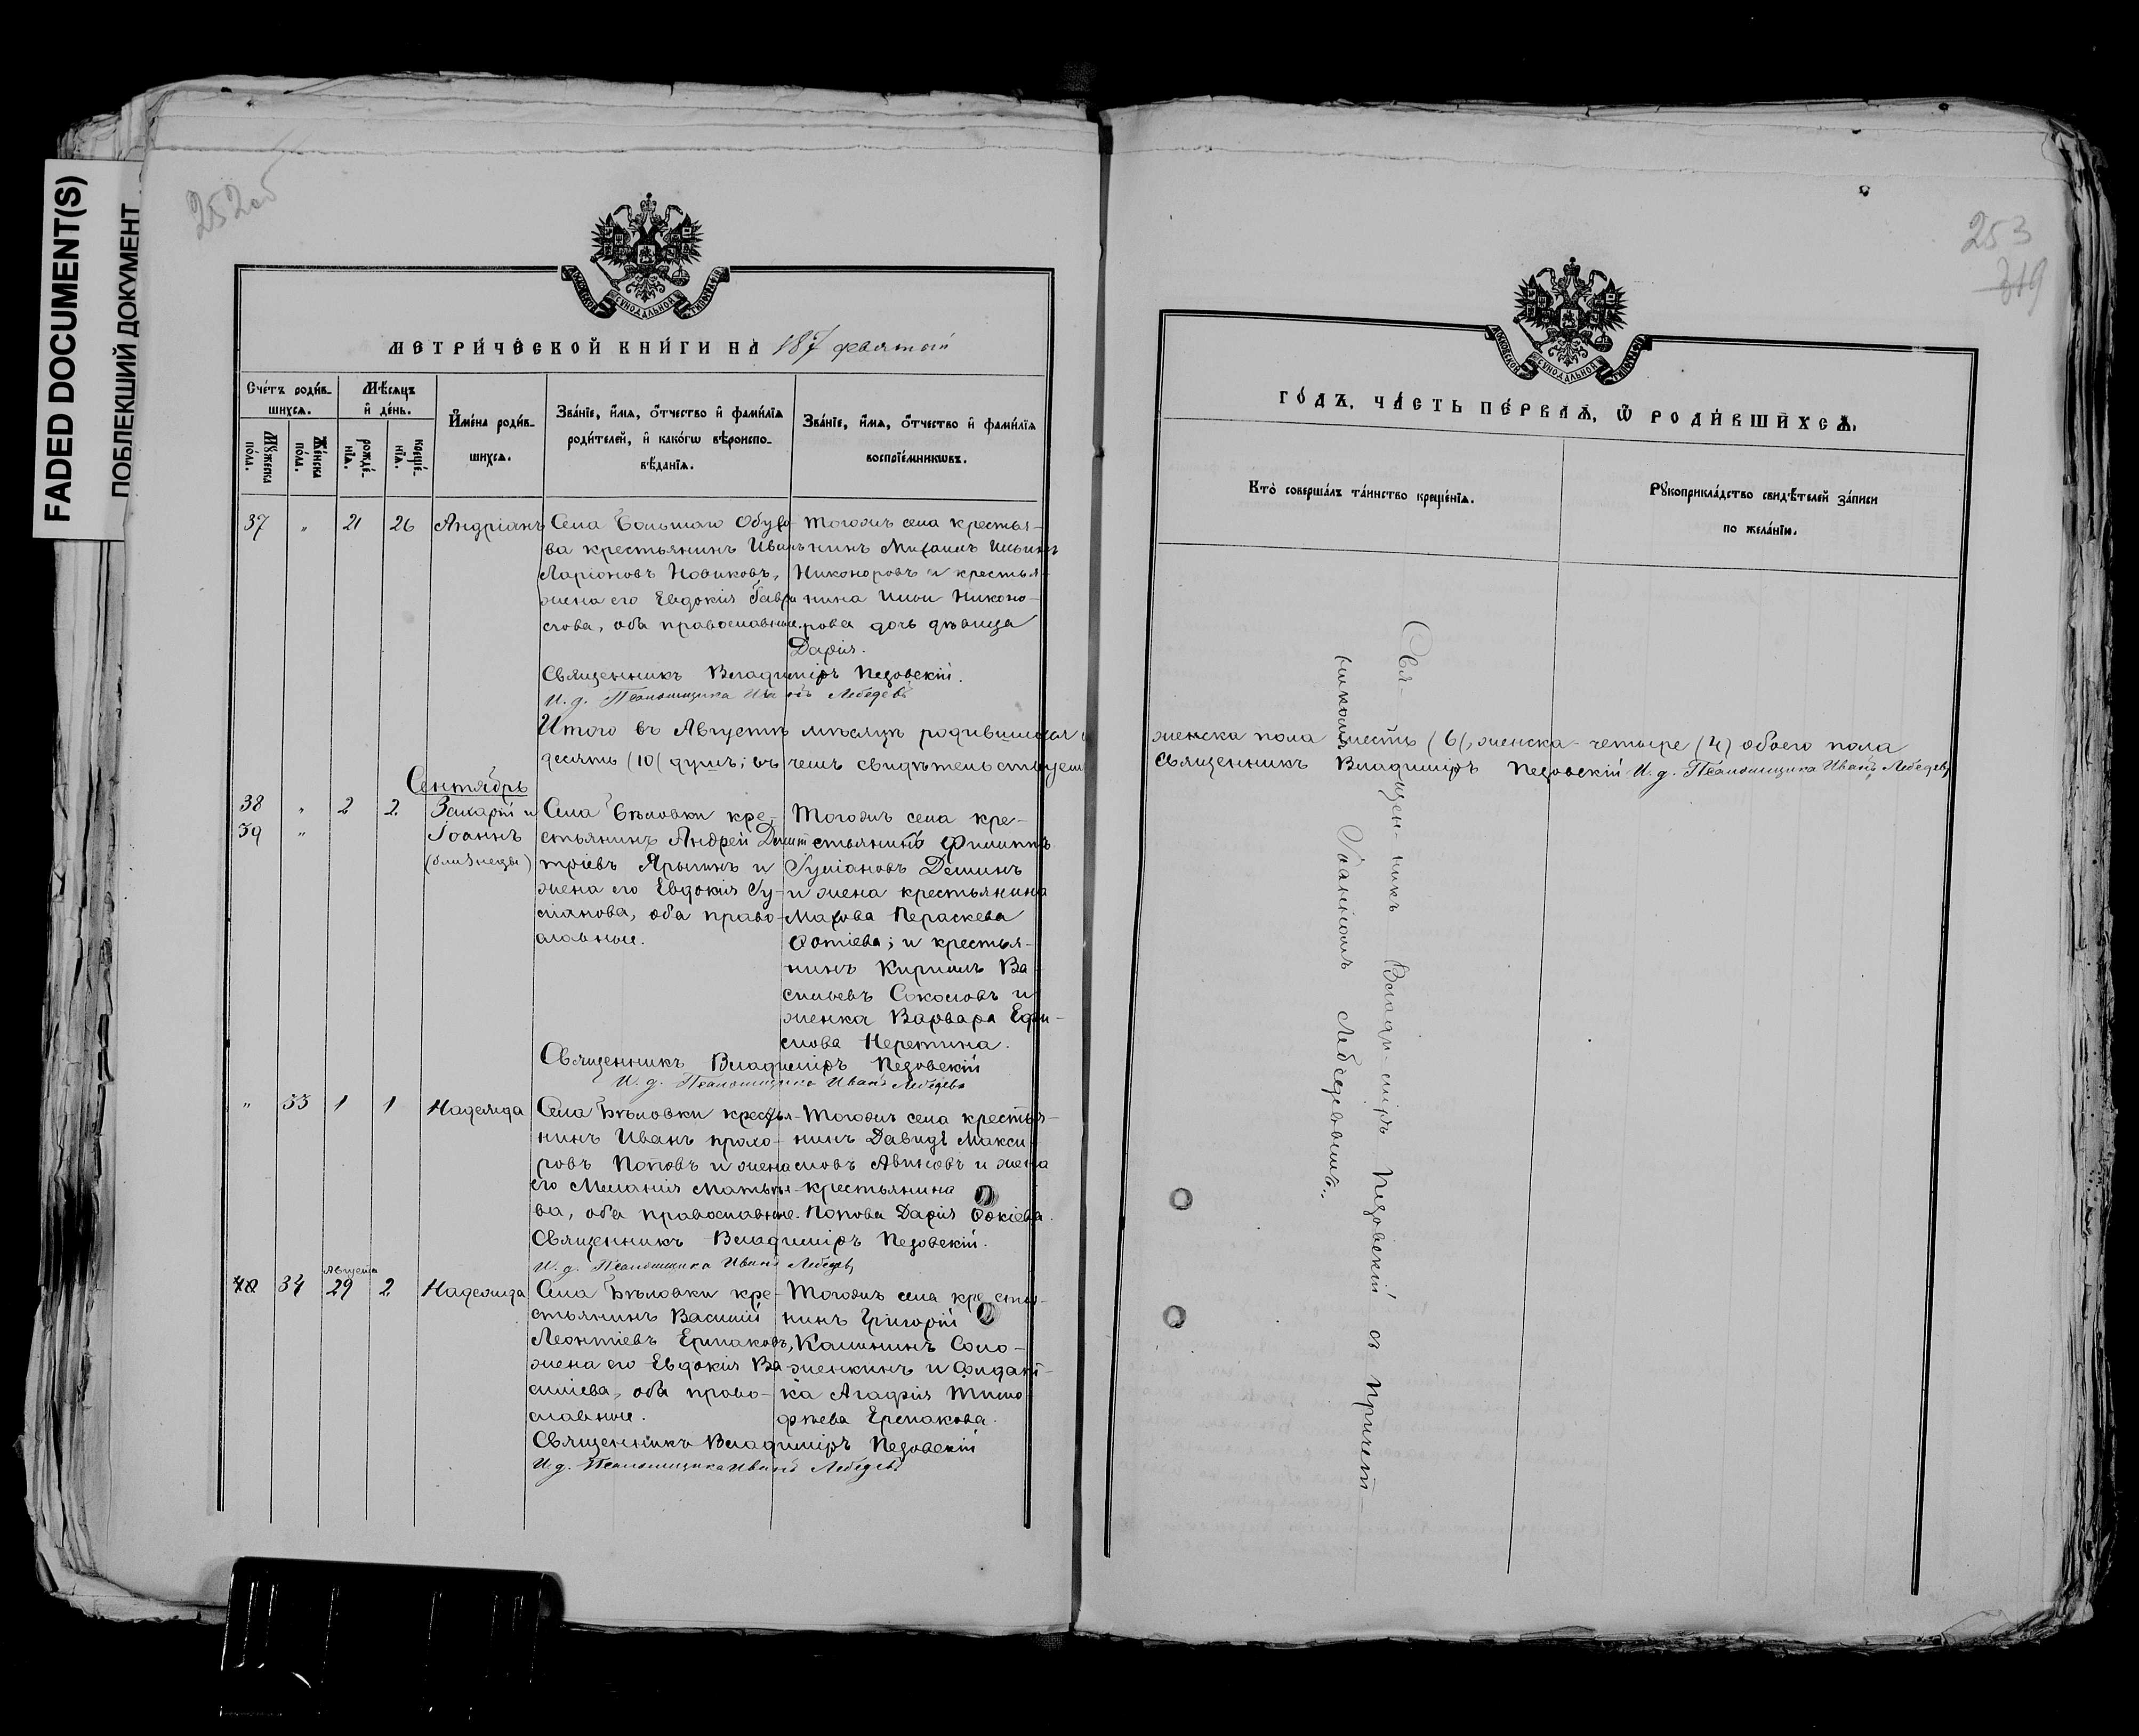 FADED DOCUMENT(S)
ПОБЛЕКШИЙ ДОКУМЕНТ
252об
МОСКОВСКОЙ СѴНОДАЛЬНОЙ ТИПОГРАФІИ
МЕТРИ́ЧЕСКОЙ КНИ́ГИ НА 187 девятый
Сче́тъ роди́в-
шихсѧ.
Мѣ́сѧцъ
и҆ де́нь.
Мꙋ́жеска
по́ла.
Же́нска
по́ла.
рожде́-
нїѧ.
креще́-
нїѧ.
И҆мена̀ роди́в-
шихсѧ.
Зва́нїе, и҆́мѧ, ѻ҆́тчество и҆ фами́лїѧ
роди́телей, и҆ како́гѡ вѣроиспо-
вѣ́данїѧ.
Зва́нїе, и҆́мѧ, ѻ҆́тчество и҆ фами́лїѧ
воспрїе́мникѡвъ.
37 " 21 26 Андріанъ
Села Большаго Обухо-
ва крестьянинъ Иванъ
Ларіоновъ Новиковъ,
жена его Евдокія Гаври
лова, оба православные.
Тогожъ села крестья-
нинъ Михаилъ Ильинъ
Никоноровъ и крестья-
нина Ильи Никоно-
рова дочь дѣвица
Дарія.
Священникъ Владиміръ Пезовскій.
И. д. Псаломщика Иванъ Лебедевъ
Итого въ Августѣ мѣсяцѣ родившихся
десять (10) душъ; въ чемъ свидѣтельствуемъ
Сентябрь
38 " 2 2 Захарій и
39 " Іоаннъ
(близнецы)
Села Бѣловки кре-
стьянинъ Андрей Димит
тріевъ Ярыгинъ и
жена его Евдокія Іу-
ліанова, оба право-
славные.
Тогожъ села кре-
стьянинъ Филиппъ
Іуліановъ Деминъ
и жена крестьянина
Махова Параскева
Фотіева; и крестья-
нинъ Кириллъ Ва
сильевъ Соколовъ и
женка Варвара Ефи-
мова Неретина.
Священникъ Владиміръ Пезовскій
И. д. Псаломщика Иванъ Лебедевъ
" 33 1 1 Надежда
Села Бѣловки крестья-
нинъ Иванъ Прохо-
ровъ Поповъ и жена
его Меланія Матвѣе-
ва, оба православные.
Тогожъ села крестья-
нинъ Давидъ Макси
мовъ Авиновъ и жена
крестьянина
Попова Дарія Фокіева.
Священникъ Владиміръ Пезовскій.
И. д. Псаломщика Иванъ Лебедевъ
Августа
40 34 29 2 Надежда
Села Бѣловки кре-
стьянинъ Василій
Леонтіевъ Ермаковъ,
жена его Евдокія Ва
силіева, оба право-
славные.
Тогожъ села крестья-
нинъ Григорій
Калининъ Соло-
женкинъ и солдат-
ка Агафія Тимо
фѣева Ермакова.
Священникъ Владиміръ Пезовскій
И. д. Псаломщика Иванъ Лебедевъ
253
319
МОСКОВСКОЙ СѴНОДАЛЬНОЙ ТИПОГРАФІИ
ГО́ДЪ, ЧА́СТЬ ПЕ́РВАѦ, Ѡ҆ РОДИ́ВШИХСѦ.
Кто̀ соверша́лъ та́инство креще́нїѧ.
Рꙋкоприкла́дство свидѣ́телей за́писи
по жела́нїю.
женска пола шесть (6), женска - четыре (4) обоего пола
Священникъ Владиміръ Пезовскій И. д. Псаломщика Иванъ Лебедевъ
Свя-щен-никъ Влади-міръ Пезовскій съ причет-
никомъ Іоанномъ Лебедевымъ.